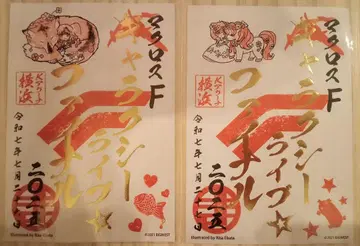 マクロスF
ギャラクシー
ライブ☆
ファイナル
二〇二五
Kアリーナ
横浜
令和七年七月二
Illustrated by Risa Ebata
マクロスF
ギャラクシー
ライブ☆
ファイナル
二〇二五
Kアリーナ
横浜
令和七年七月二
日
Illustrated by Risa Ebata